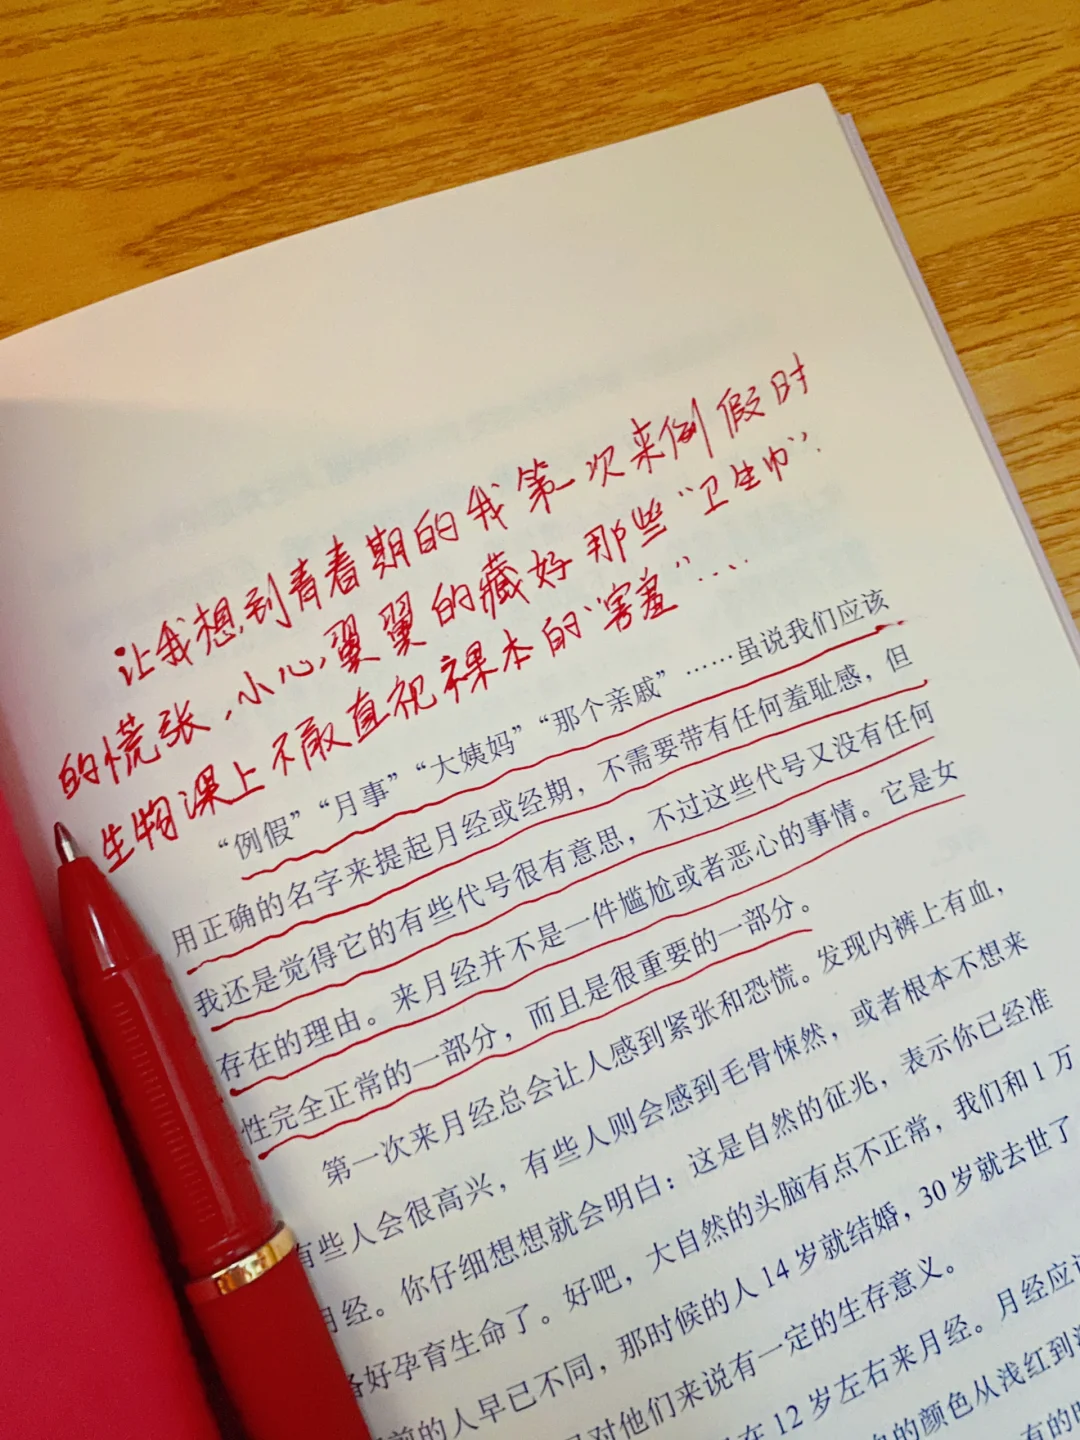 让我想到青春期的我第一次来例假时
的慌张,小心翼翼的藏好那些“卫生巾”.
生物课上不敢直视课本的“害羞”....
“例假”“月事”“大姨妈”“那个亲戚”……虽说我们应该
用正确的名字来提起月经或经期，不需要带有任何羞耻感，但
我还是觉得它的有些代号很有意思，不过这些代号又没有任何
存在的理由。来月经并不是一件尴尬或者恶心的事情。它是女
性完全正常的一部分，而且是很重要的一部分。
第一次来月经总会让人感到紧张和恐慌。发现内裤上有血，
有些人会很高兴，有些人则会感到毛骨悚然，或者根本不想来
月经。你仔细想想就会明白：这是自然的征兆，表示你已经准
备好孕育生命了。好吧，大自然的头脑有点不正常，我们和1万
前的人早已不同，那时候的人14岁就结婚，30岁就去世了
对他们来说有一定的生存意义。
在12岁左右来月经。月经应该
的颜色从浅红到
有的